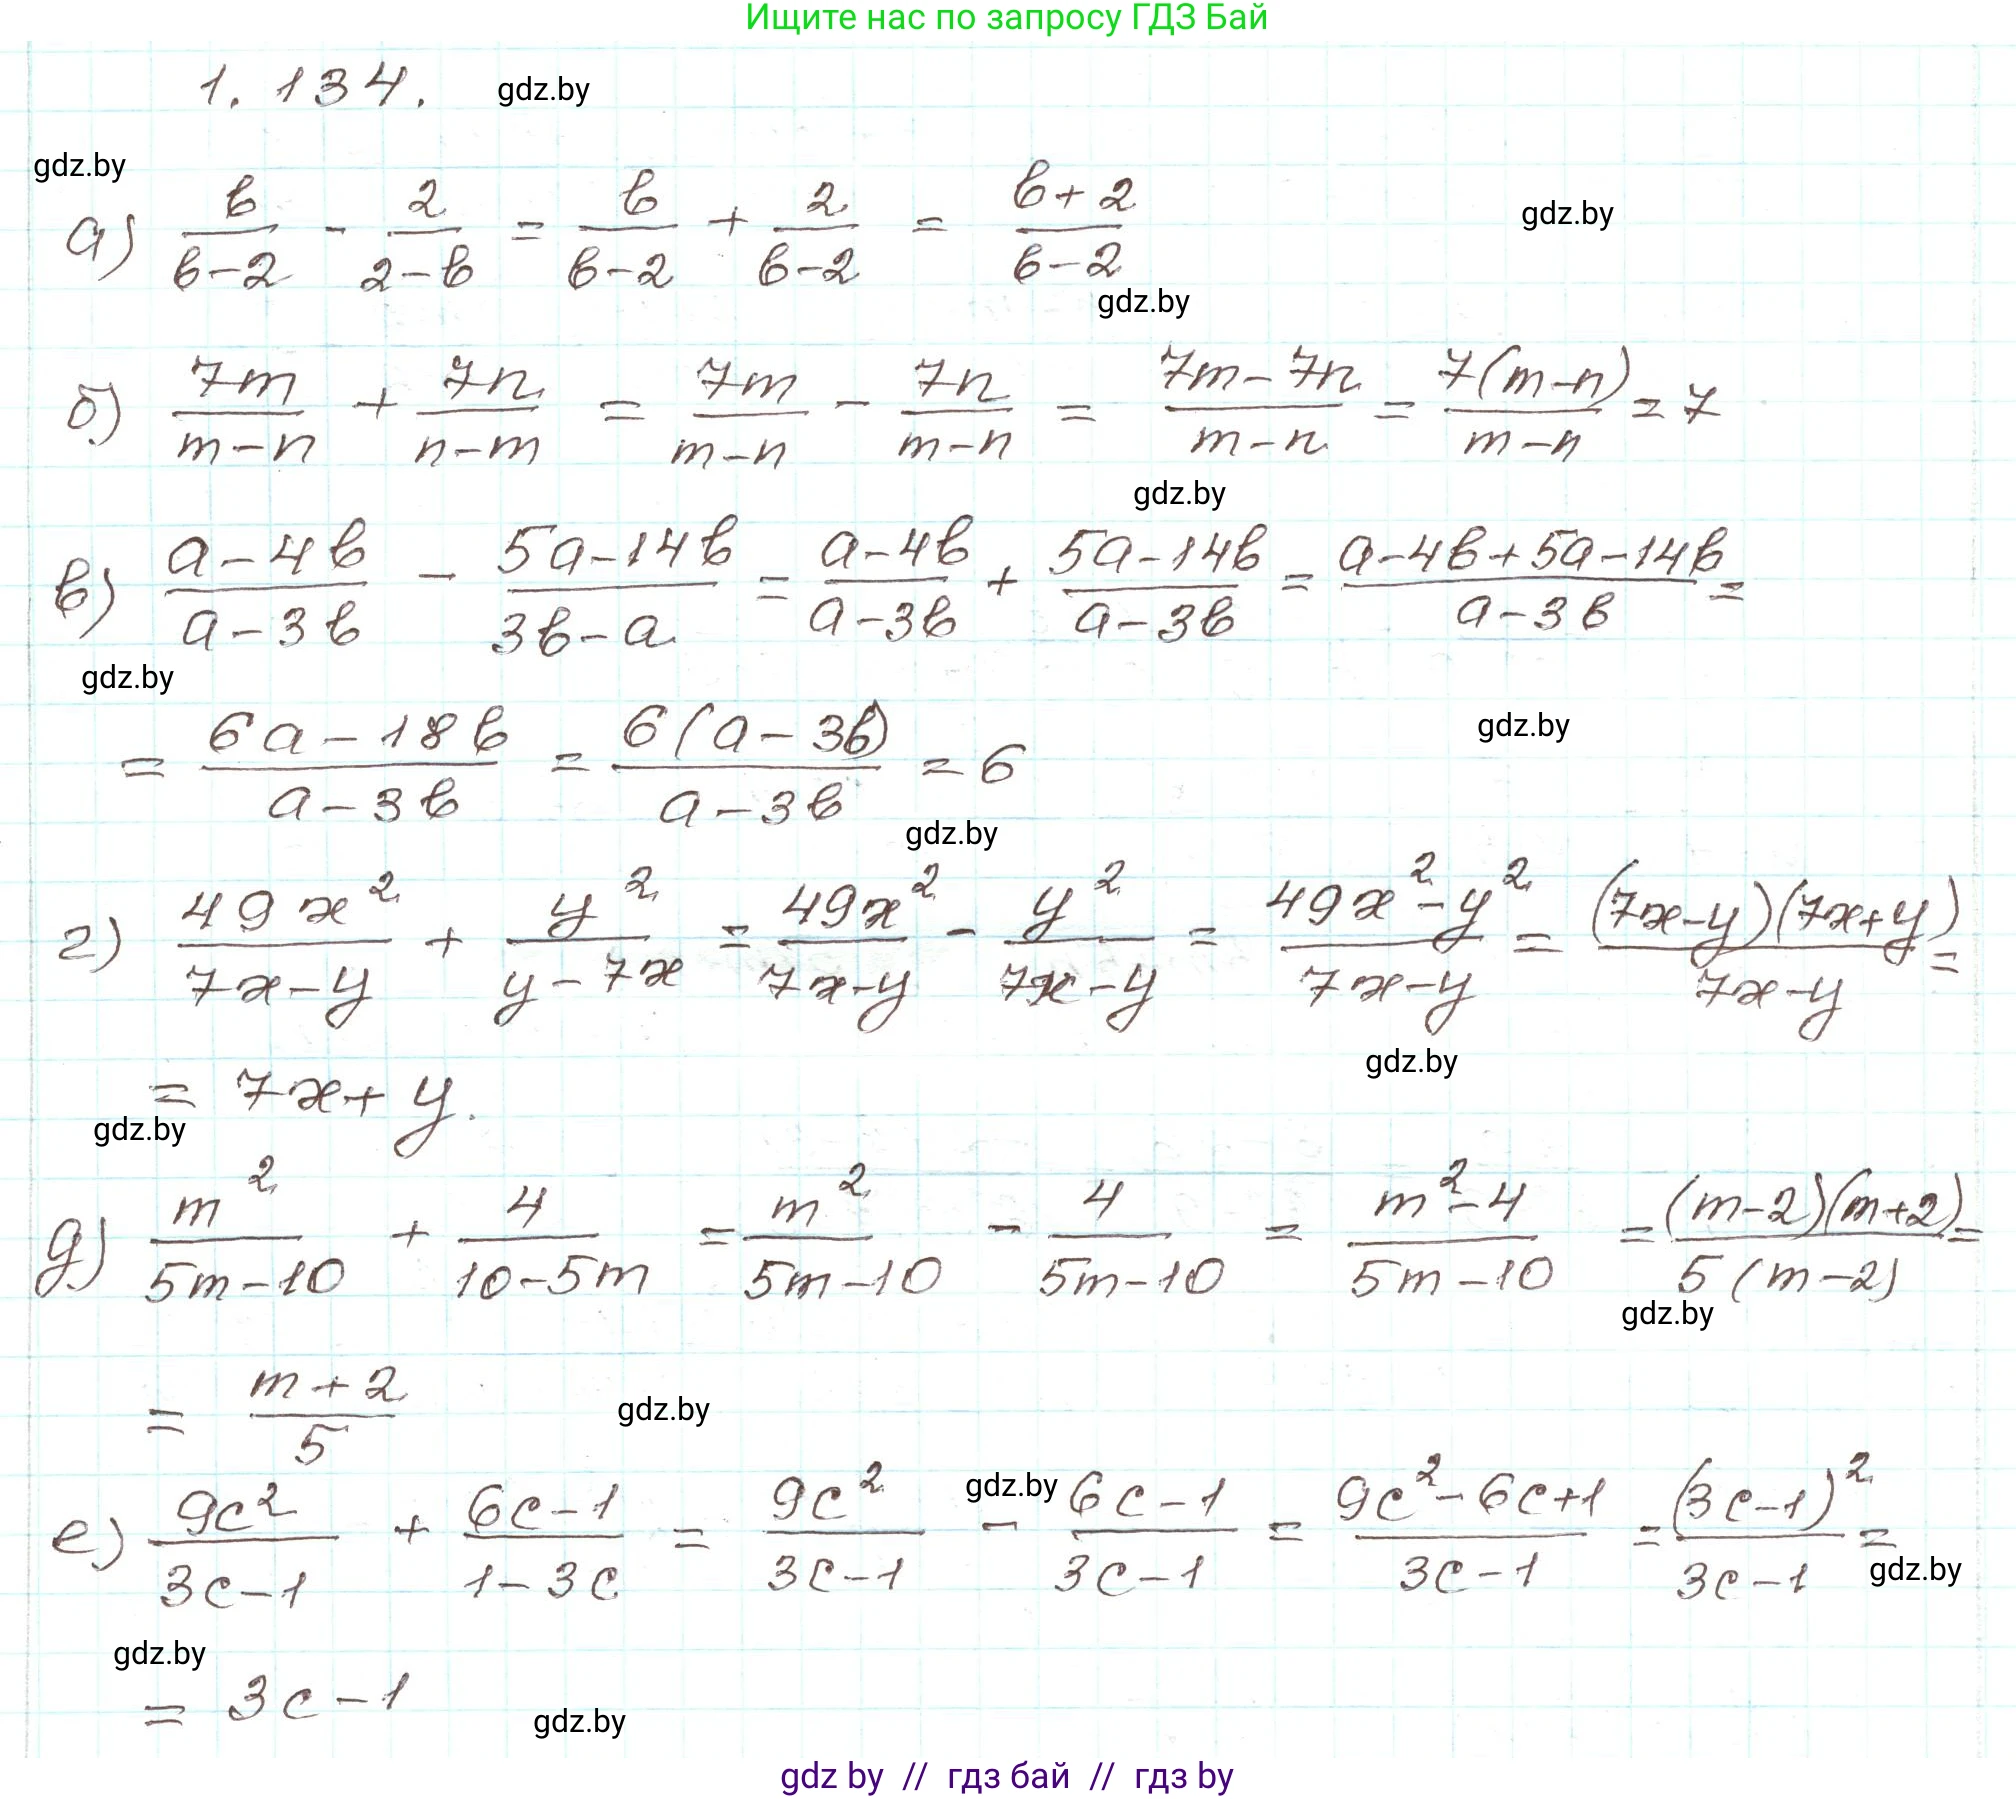 Ищите нас по запросу ГДЗ Бай
1.134. gdz.by
gdz.by
а) \frac{b}{b-2} - \frac{2}{2-b} = \frac{b}{b-2} + \frac{2}{b-2} = \frac{b+2}{b-2} gdz.by
gdz.by
б) \frac{7m}{m-n} + \frac{7n}{n-m} = \frac{7m}{m-n} - \frac{7n}{m-n} = \frac{7m-7n}{m-n} = \frac{7(m-n)}{m-n} = 7
gdz.by
в) \frac{a-4b}{a-3b} - \frac{5a-14b}{3b-a} = \frac{a-4b}{a-3b} + \frac{5a-14b}{a-3b} = \frac{a-4b+5a-14b}{a-3b} =
gdz.by
= \frac{6a-18b}{a-3b} = \frac{6(a-3b)}{a-3b} = 6 gdz.by
gdz.by
г) \frac{49x^2}{7x-y} + \frac{y^2}{y-7x} = \frac{49x^2}{7x-y} - \frac{y^2}{7x-y} = \frac{49x^2-y^2}{7x-y} = \frac{(7x-y)(7x+y)}{7x-y} =
gdz.by
= 7x+y.
gdz.by
д) \frac{m^2}{5m-10} + \frac{4}{10-5m} = \frac{m^2}{5m-10} - \frac{4}{5m-10} = \frac{m^2-4}{5m-10} = \frac{(m-2)(m+2)}{5(m-2)} =
gdz.by
= \frac{m+2}{5} gdz.by
gdz.by
е) \frac{9c^2}{3c-1} + \frac{6c-1}{1-3c} = \frac{9c^2}{3c-1} - \frac{6c-1}{3c-1} = \frac{9c^2-6c+1}{3c-1} = \frac{(3c-1)^2}{3c-1} =
gdz.by
gdz.by
= 3c-1 gdz.by
gdz by // гдз бай // гдз by